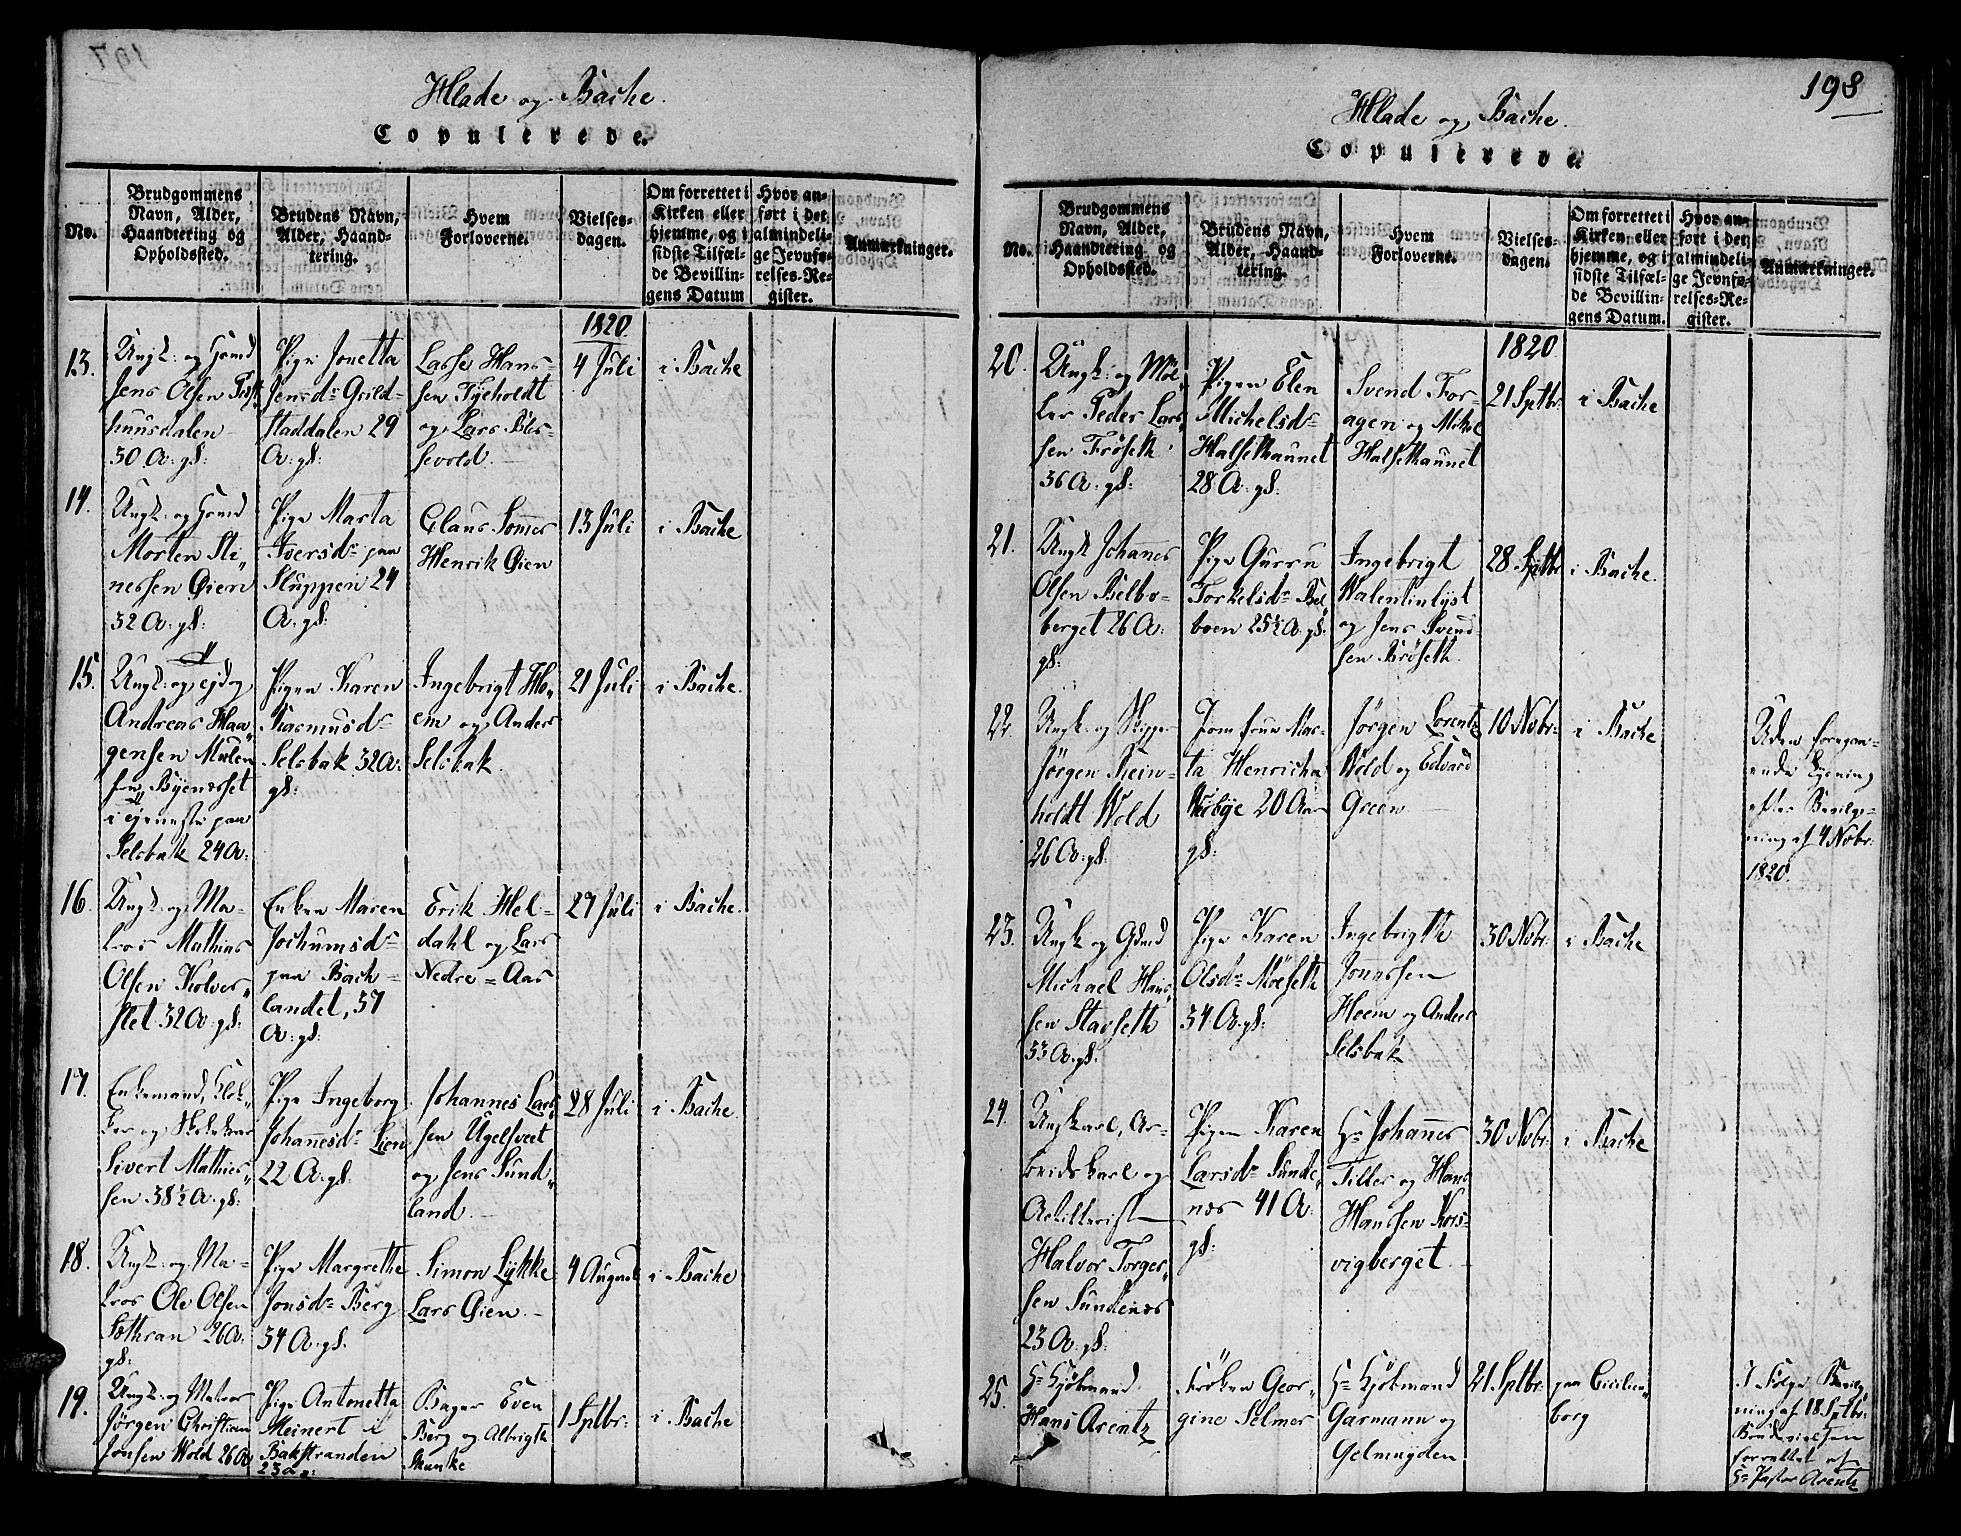 Hlade og Bache.
Copulerede.
No.
Brudgommens
Navn, Alder,
Haandtering og
Opholdssted.
Brudens Navn,
Alder, Haand-
tering.
Hvem
Forloverne.
Vielses-
dagen.
Om forrettet i
Kirken eller
hjemme, og i
sidste Tilfæl-
de Bevillin-
gens Datum
Hvor an-
ført i det
almindeli-
ge Jevnfø-
relses-Re-
gister.
Anmærkninger.
1820
13.
Ungk: og Gmd
Jens Olsen
huusdalen
30 A: gl:
Pige Jonetta
Jensdr Grild-
staddalen 29
A: gl:
Lasse Hans-
sen Tyeholdt
og Lars
sevold.
4 Juli
i Bache
14.
Ungk: og Gmd
Morten Sti-
nessen Øien
32 A: gl:
Pige Marta
Iversdr paa
Sluppen 24
A: gl:
Claus Somer
Henrik Øien
13 Juli
i Bache
15.
Ungk: og
Andreas Haa-
gensen Mulen
fra Byenæsset
i tjeneste paa
Selsbak 24 A:
Pigen Karen
Rasmusdr
Selsbak 32 A:
gl:
Ingebrigt Ho-
em og Anders
Selsbak.
21 Juli
i Bache.
16.
Ungk: og Ma-
tros Mathias
Olsen Kolver-
flet 32 A: gl:
Enken Maren
Jochumsdr
paa Bach-
landet, 37
A: gl:
Erik Hel-
dahl og Lars
Nedre-Aas
27 Juli
i Bache.
17.
Enkemand, Klok-
ker og Skoleholder
Sivert Mathies-
sen 38½ A: gl:
Pige Ingeborg
Johannesdr Lien
22 A: gl:
Johannes Lars-
sen Ugelsveet
og Jens Sund-
land.
28 Juli
i Bache.
18.
Ungk: og Ma-
tros Ole Olsen
26 A:
gl:
Pige Margrethe
Jonsdr Berg
34 A: gl.
Simon Lykke
Lars Øien.
4 August
i Bache
19.
Ungk: og Matros
Jørgen Christian
Jonsen Wold 26 A
Pige Antonetta
Meinert i
Bakstranden
23
Bager Even
Berg og Albrigt
Skunke
1 Sptbr:
i Bache
198
Hlade og Bache.
Copulerede.
No.
Brudgommens
Navn, Alder,
Haandtering og
Opholdssted.
Brudens Navn,
Alder, Haand-
tering.
Hvem
Forloverne.
Vielses-
dagen.
Om forrettet i
Kirken eller
hjemme, og i
sidste Tilfæl-
de Bevillin-
gens Datum.
Hvor an-
ført i det
almindeli-
ge Jevnfø-
relses-Re-
gister.
Anmærkninger.
1820
20.
Ungk: og Møl-
ler Peder Lars-
sen Frøseth
36 A: gl:
Pigen Elen
Michelsdr
Halsethaunet
28 A: gl:
Svend For-
agen og Mikel
Halsethaunet
21 Sptbr:
i Bache
21.
Ungk Johanes
Olsen Belbo-
berget 26 A:
gl:
Pige Gurru
Torkelsdr Bel-
boen 25½ A: gl:
Ingebrigt
Walentinlyst
og Jens Svend-
sen Brøseth.
28 Sptbr
i Bache.
22.
Ungk: og Skipper
Jörgen Rein-
holdt Wold
26 A: gl:
Jomfrue Mar-
ta Henricha
20 Aar
gl:
Jörgen Lorentz
Wold og Edvard
Green
10 Novbr:
i Bache
Uden foregaa-
ende Lysning
efter Bevilg-
ning af 4 Novbr:
1820.
23.
Ungk og Gdmd
Michael Hans-
sen Stavseth
53 A: gl:
Pige Karen
Olsdr Möeseth
34 A: gl:
Ingebrigth
Jonassen
Hoem og Anders
Selsbak
30 Novbr:
i Bache
24.
Ungkarl, Ar-
beidskarl og
Artillerist
Halvor Torger-
sen Sundenæs
23 A: gl:
Pigen Karen
Larsdr Sunde-
næs 41 A:
gl:
Hr Johannes
Tiller og Hans
Hanssen Kors-
vigberget.
30 Novbr:
i Bache
25.
Hr Kjöbmand
Hans Arentz
Fröken Geor-
gine Selmer
Hr Kjöbmand
Garmann og
Gelmuyden
21 Sptbr:
paa Cicilien-
borg
I Følge Bevilg-
ning af 18 Sptbr:
Brudevielsen
forrettet af
Hr Pastor Arentz